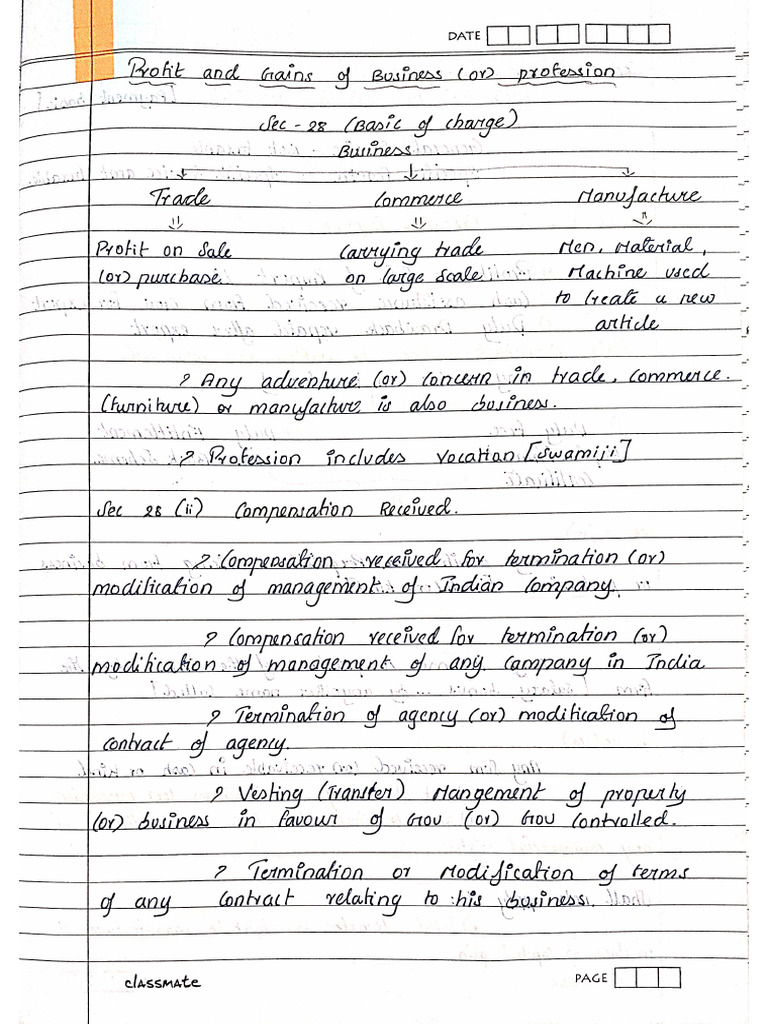 DATE
Profit and Gains of Business (or) profession
Sec - 28 (Basic of charge)
Business
Trade Commerce Manufacture
Profit on Sale carrying trade Men, Material,
(or) purchase on large scale Machine used
to Create a new
article
? Any adventure (or) concern in trade, commerce.
(furniture) or manufacture is also business.
? Profession includes vocation [Swamiji]
Sec 28 (ii) Compensation Received.
? Compensation received for termination (or)
modification of management of Indian Company.
? Compensation received for termination (or)
modification of management of any company in India
? Termination of agency (or) modification of
contract of agency.
? Vesting (Transfer) Mangement of property
(or) business in favour of Gov (or) Gov Controlled.
? Termination or Modification of terms
of any contract relating to his business.
classmate
PAGE